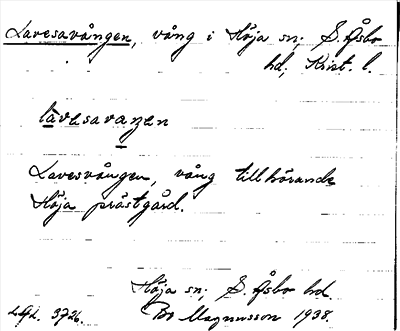 Lavesavången, vång i Höja sn; S. Åsbo
hd, Krist. l.
lavesavaŋen
Lavesvången, vång tillhörande
Höja prästgård.
Höja sn; S. Åsbo hd.
3726. Bo Magnusson 1938.